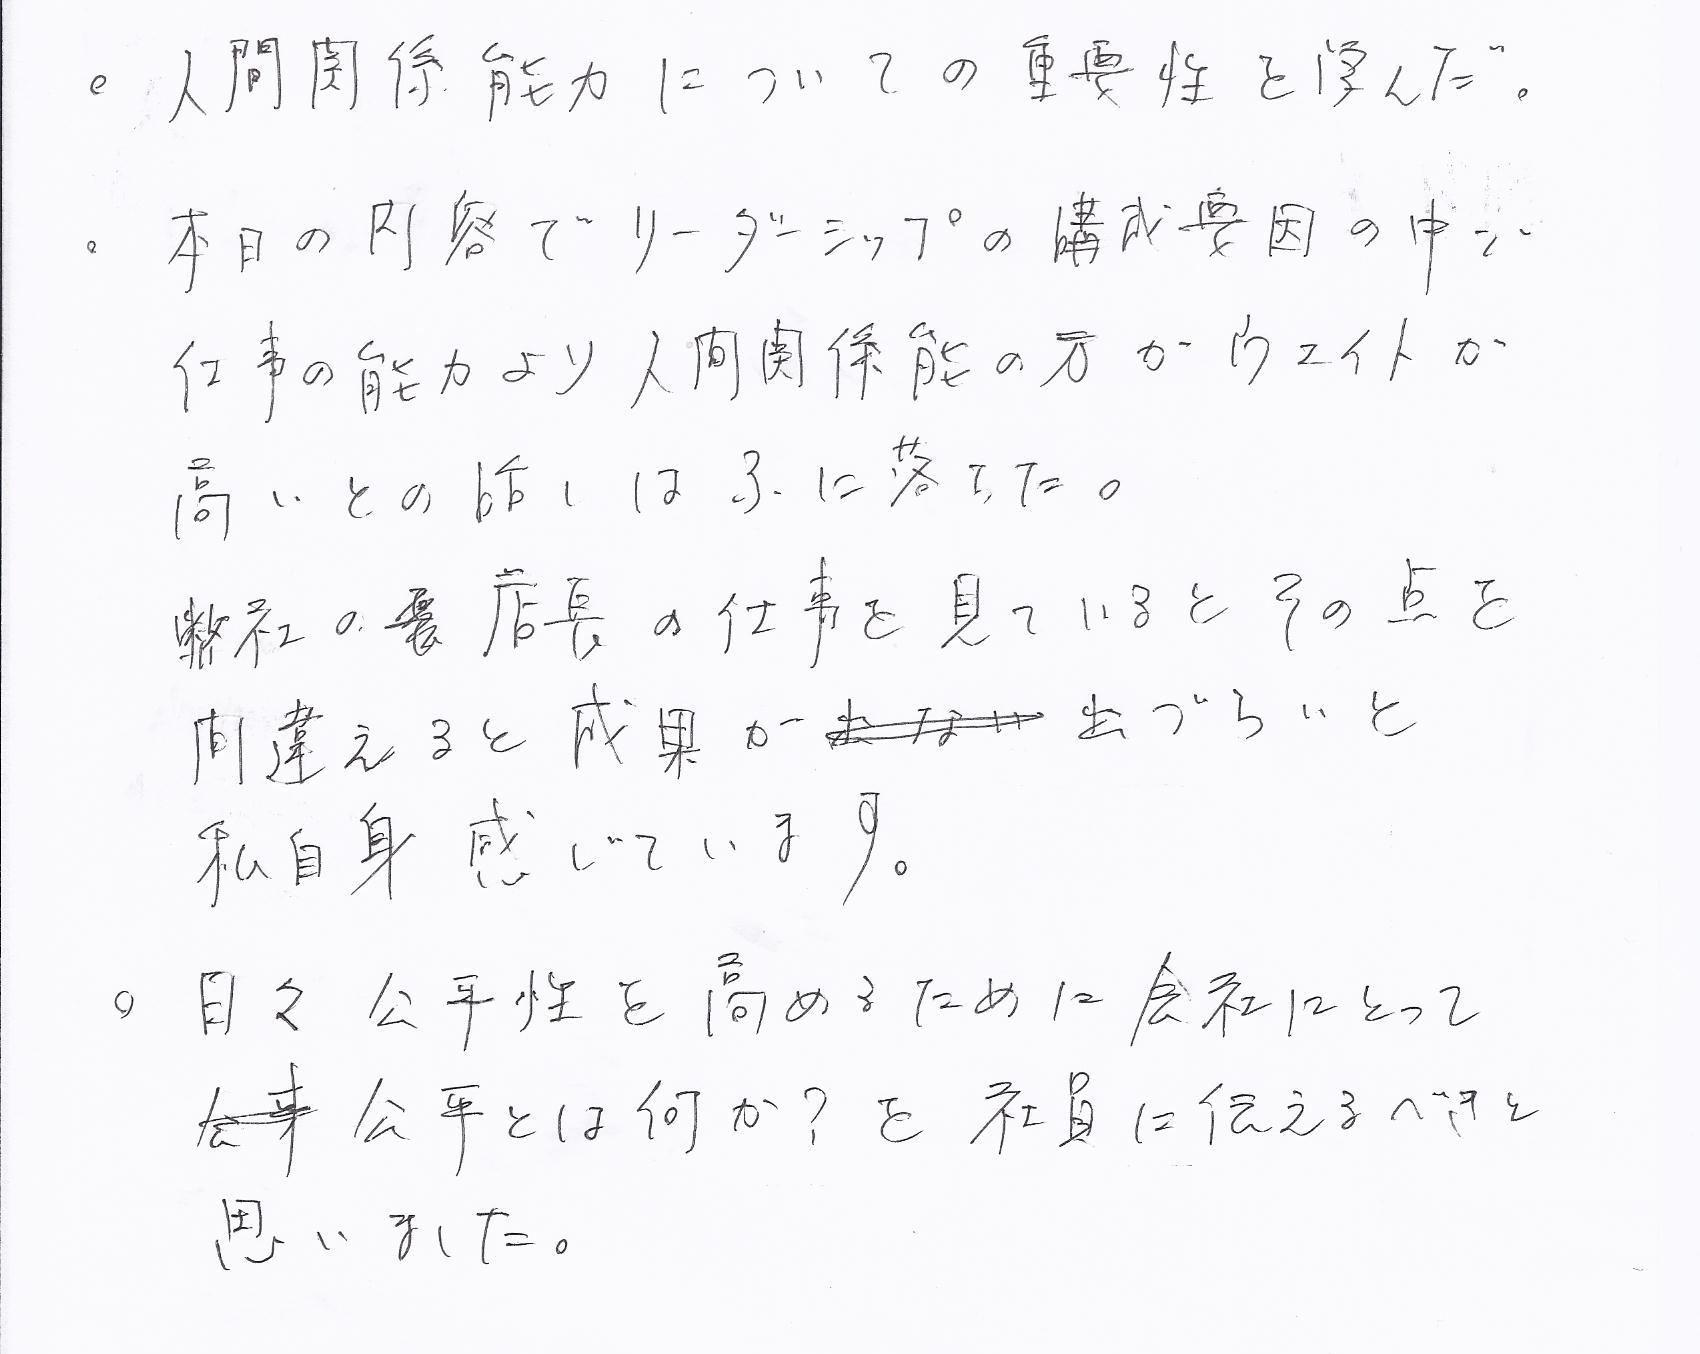 。人間関係能力についての重要性を学んだ。
。本日の内容でリーダーシップの構成要因の中で
仕事の能力より人間関係能の方がウェイトが
高いとの話しはふに落ちた。
弊社の店長の仕事を見ているとその点を
間違えると成果が出づらいと
私自身感じています。
。日々公平性を高めるために会社にとって
公平とは何か?を社員に伝えるべきと
思いました。